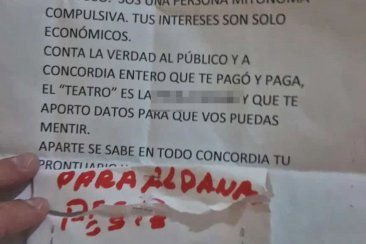 SOS UNA PERSONA MITÓNOMA
COMPULSIVA. TUS INTERESES SON SOLO
ECONÓMICOS.
CONTA LA VERDAD AL PÚBLICO Y A
CONCORDIA ENTERO QUE TE PAGÓ Y PAGA,
EL "TEATRO" ES LA Y QUE TE
APORTO DATOS PARA QUE VOS PUEDAS
MENTIR.
APARTE SE SABE EN TODO CONCORDIA TU
PRONTUARIO
PARA ALDANA